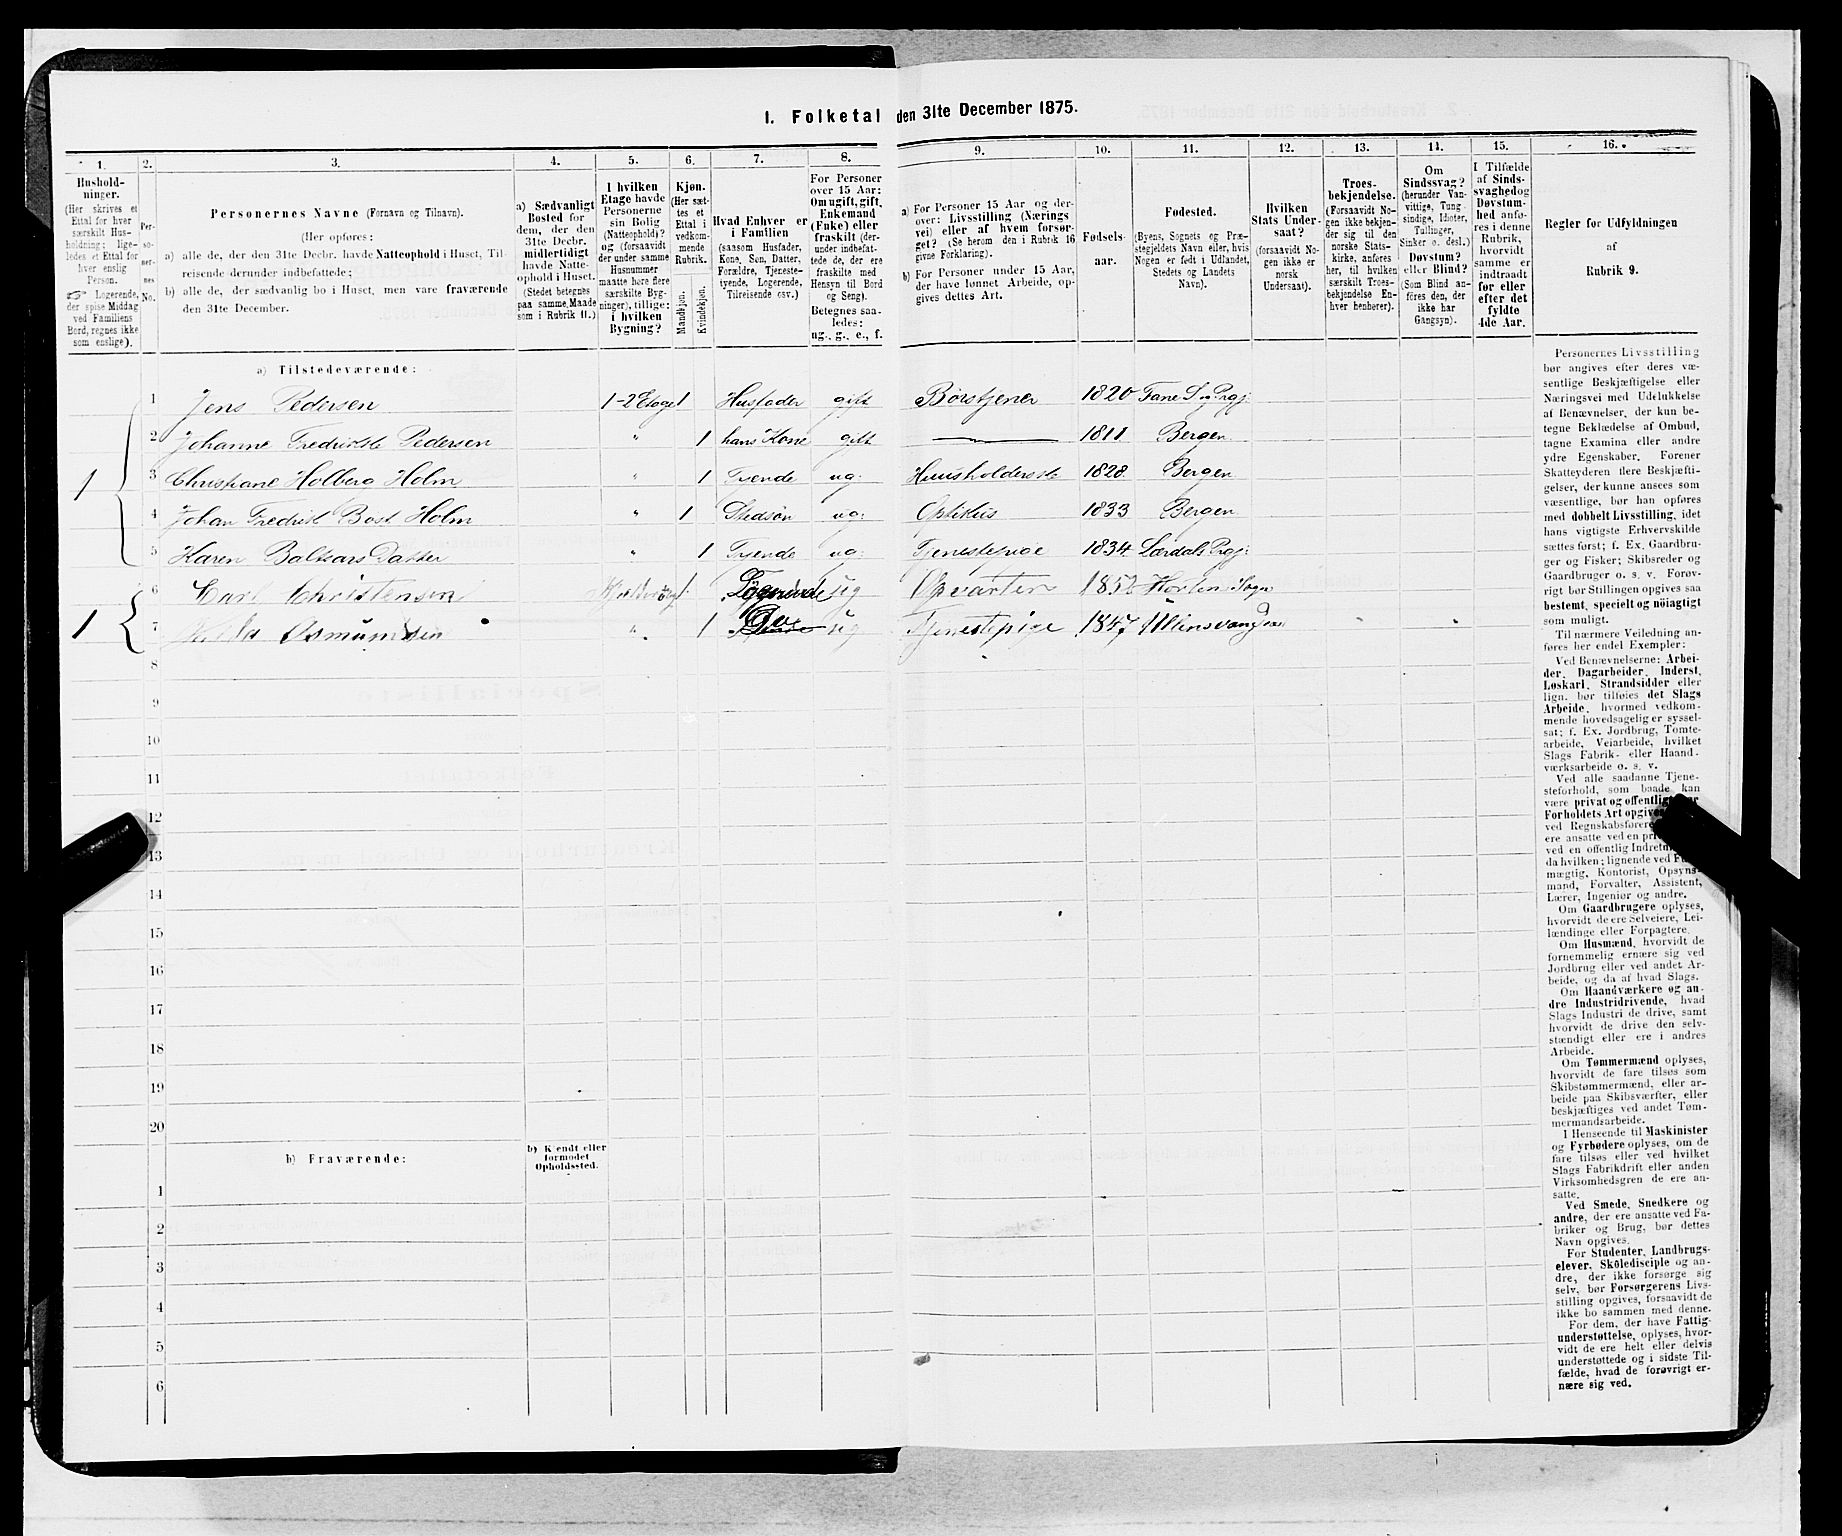 I. Folketal den 31te December 1875.
1. 2. 3. 4. 5. 6. 7. 8. 9. 10. 11. 12. 13. 14. 15. 16.
Hushold-
ninger.
(Her skrives et
Ettal for hver
særskilt Hus-
holdning; lige-
ledes et Ettal for
hver enslig
Person.
☞ Logerende,
der spise Middag
ved Familiens
Bord, regnes ikke
som enslige).
Per-
so-
ner-
nes
No.
Personernes Navne (Fornavn og Tilnavn).
(Her opføres:
a) alle de, der den 31te Decbr. havde Natteophold i Huset, Til-
reisende derunder indbefattede;
b) alle de, der sædvanlig bo i Huset, men vare fraværende
den 31te December.
a) Sædvanligt
Bosted for
dem, der den
31te Decbr.
midlertidigt
havde Natte-
ophold i Huset.
(Stedet betegnes
paa samme Maade
som i Rubrik 11.)
I hvilken
Etage havde
Personerne
sin Bolig
(Natteophold)?
og (forsaavidt
der under samme
Husnummer
maatte høre flere
særskilte Byg-
ninger), tillige:
i hvilken
Bygning?
Kjøn.
(Her sæt-
tes et
Ettal i
vedkom-
mende
Rubrik.
Mandkjøn.
Kvindekjøn.
Hvad Enhver er
i Familien
(saasom Husfader,
Kone, Søn, Datter,
Forældre, Tjeneste-
tyende, Logerende,
Tilreisende osv.)
For Personer
over 15 Aar:
Om ugift, gift,
Enkemand
(Enke) eller
fraskilt (der-
under indbefat-
tede de, der ere
fraskilte med
Hensyn til Bord
og Seng).
Betegnes saa-
ledes:
ug., g., e., f.
a) For Personer 15 Aar og der-
over: Livsstilling (Nærings
vei) eller af hvem forsør-
get? (Se herom den i Rubrik 16
givne Forklaring).
b) For Personer under 15 Aar,
der have lønnet Arbeide, op-
gives dettes Art.
Fødsels-
aar.
Fødested.
(Byens, Sognets og Præ-
stegjeldets Navn eller, hvis
Nogen er født i Udlandet,
Stedets og Landets
Navn).
Hvilken
Stats Under-
saat?
(forsaavidt No-
gen ikke er
norsk
Undersaat).
Troes-
bekjendelse.
(Forsaavidt No-
gen ikke bekjen-
der sig til den
norske Stats-
kirke, anføres
her, til hvilken
særskilt Troes-
bekjendelse En-
hver henhører).
Om
Sindssvag?
(herunder Van-
vittige, Tung-
sindige, Idioter,
Tullinger,
Sinker o. desl.)
Døvstum?
eller Blind?
(Som Blind an-
føres den, der
ikke har
Gangsyn).
I Tilfælde
af Sinds-
svaghed og
Døvstum-
hed anfø-
res i denne
Rubrik,
hvorvidt
samme er
indtraadt
før eller
efter det
fyldte
4de Aar.
Regler for Udfyldningen
af
Rubrik 9.
a) Tilstedeværende:
1 Jens Pedersen 1-2 Etage 1 Husfader gift Børstjener 1820 Fane S. og Prgj:
2 Johanne Fredrikke Pedersen " 1 hans Kone gift — 1811 Bergen
1 3 Christiane Holberg Holm " 1 Tyende ug: Huusholderske 1828 Bergen
4 Johan Fredrik Holm " 1 Stedsøn ug: Optikus 1833 Bergen
5 Karen Baltsars Datter " 1 Tyende ug: Tjenestepige 1834 Lærdals Prgj:
6 Carl Christensen 1 Logerende ug Opvarter 1852 Horten Sogn
1 7 Osmundsen " 1 Do ug Tjenestepige 1847
8
9
10
11
12
13
14
15
16
17
18
19
20
b) Fraværende:
b) Kjendt eller
formodet
Opholdssted.
1
2
3
4
5
6
Personernes Livsstilling
bør angives efter deres væ-
sentlige Beskjæftigelse eller
Næringsvei med Udelukkelse
af Benævnelser, der kun be-
tegne Beklædelse af Ombud,
tagne Examina eller andre
ydre Egenskaber. Forener
Skatteyderen flere Beskjæfti-
gelser, der kunne ansees som
væsentlige, bør han opføres
med dobbelt Livsstilling, idet
hans vigtigste Erhvervskilde
sættes først; f. Ex. Gaardbru-
ger og Fisker; Skibsreder og
Gaardbruger o. s. v. Forøv-
rigt bør Stillingen opgives saa
bestemt, specielt og nøiagtigt
som muligt.
Til nærmere Veiledning an-
føres her endel Exempler:
Ved Benævnelserne: Arbei-
der, Dagarbeider, Inderst,
Løskarl, Strandsidder eller
lign. bør tilføies det Slags
Arbeide, hvormed vedkom-
mende hovedsagelig er syssel-
sat; f. Ex. Jordbrug, Tomte-
arbeide, Veiarbeide, hvilket
Slags Fabrik- eller Haand-
værksarbeide o. s. v.
Ved alle saadanne Tjene-
steforhold, som baade kan
være privat og offentligt,
Forholdets Art
ved
ere ansatte ved en
ved en offentlig
da hvilken; lignende ved
mægtig, Kontorist, Opsyns-
mand, Forvalter, Assistent,
Lærer, Ingeniør og andre.
Om Gaardbrugere oplyses,
hvorvidt de ere Selveiere, Lei-
lændinge eller Forpagtere.
Om Husmænd, hvorvidt de
fornemmelig ernære sig ved
Jordbrug eller ved andet Ar-
beide, og da af hvad Slags.
Om Haandværkere og an-
dre Industridrivende, hvad
Slags Industri de drive, samt
hvorvidt de drive den selv-
stændigt eller ere i andres
Arbeide.
Om Tømmermænd oplyses,
hvorvidt de fare tilsøs som
Skibstømmermænd, eller ar-
beide paa Skibsværfter, eller
beskjæftiges ved andet Tøm-
mermandsarbeide.
I Henseende til Maskinister
og Fyrbødere oplyses, om de
fare tilsøs eller ved hvilket
Slags Fabrikdrift eller anden
Virksomhedsgren de ere an-
satte.
Ved Smede, Snedkere og
andre, der ere ansatte ved Fa-
briker og Brug, bør dettes
Navn opgives.
For Studenter, Landbrugs-
elever, Skoledisciple og an-
dre, der ikke forsørge sig
selv, bør Forsørgerens Livs-
stilling opgives, forsaavidt de
ikke bo sammen med denne.
For dem, der have Fattig-
understøttelse, oplyses, hvor-
vidt de ere helt eller delvis
understøttede og i sidste Til-
fælde, hvad de forøvrigt er-
nære sig ved.